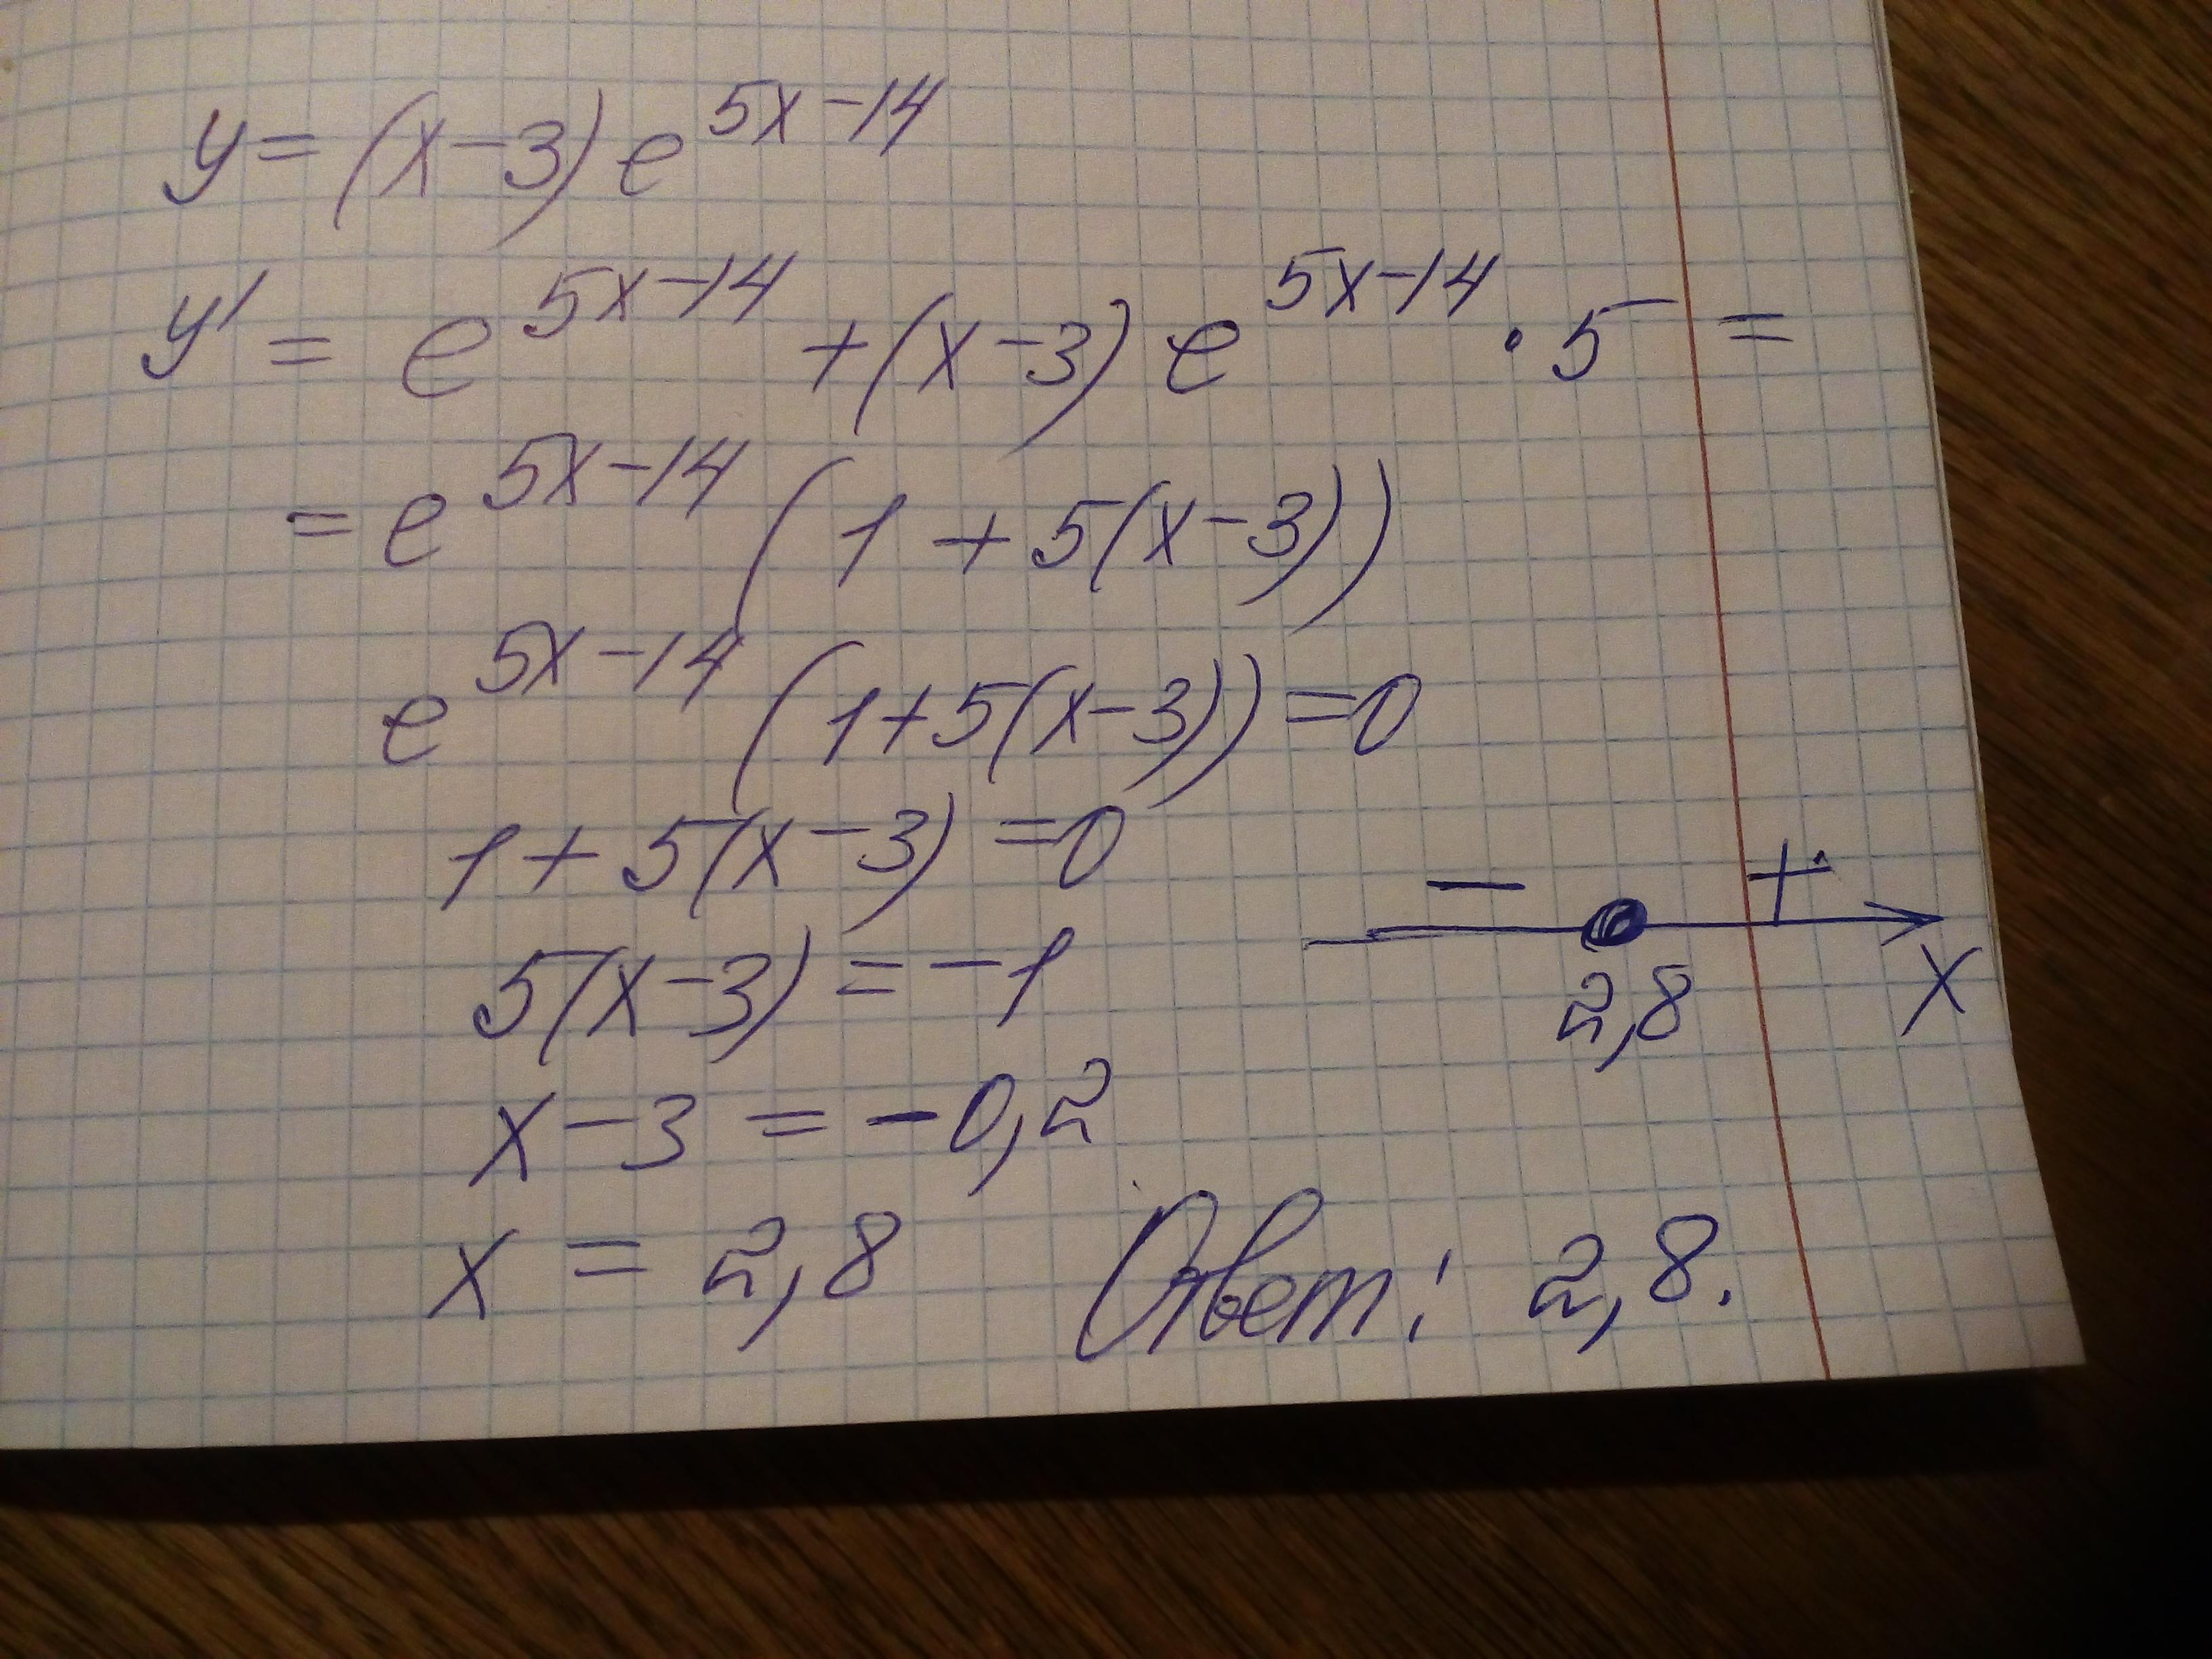 y = (x-3) e^{5x-14}
y' = e^{5x-14} + (x-3) e^{5x-14} · 5 =
= e^{5x-14} (1 + 5(x-3))
e^{5x-14} (1+5(x-3)) = 0
1 + 5(x-3) = 0
— +
5(x-3) = -1
2,8 x
x - 3 = -0,2
x = 2,8 Ответ: 2,8.